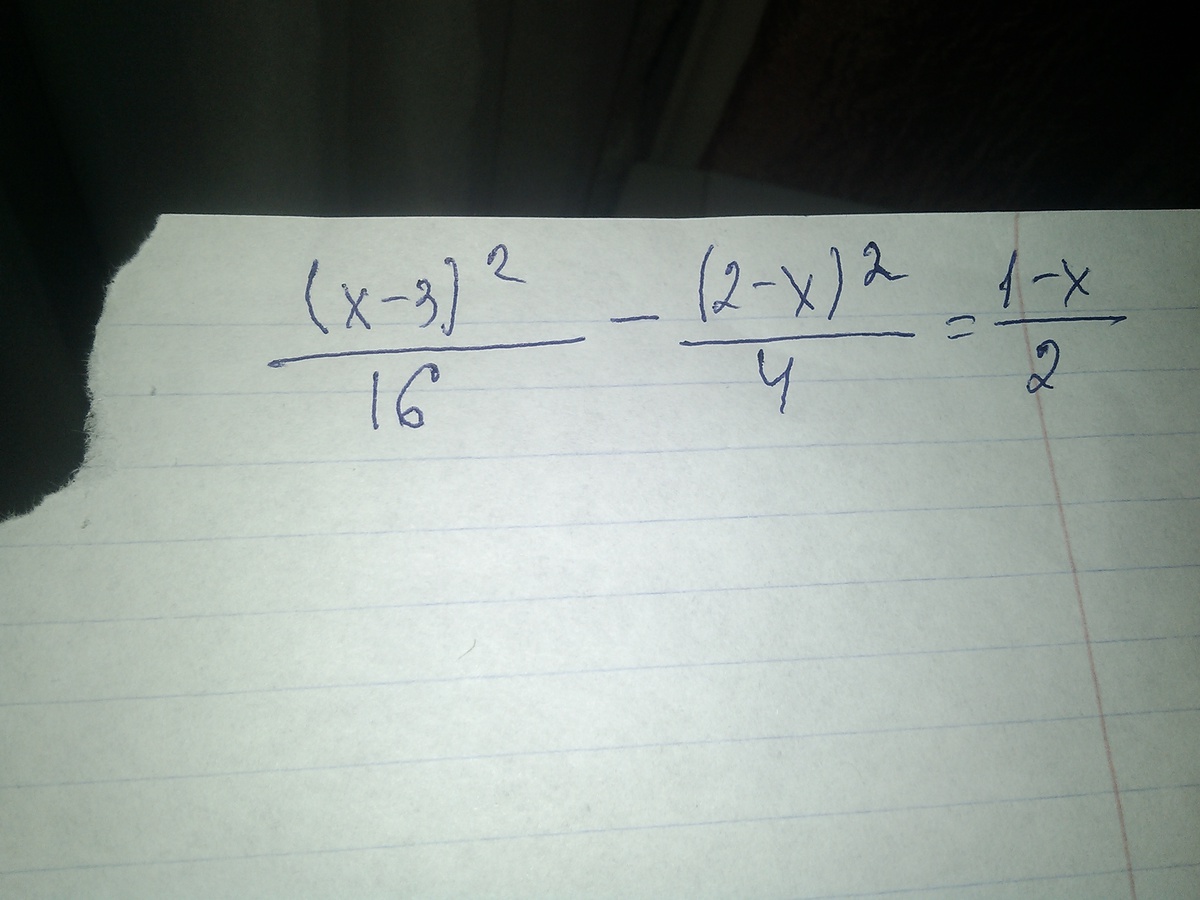 (x-3)²/16 - (2-x)²/4 = 1-x/2